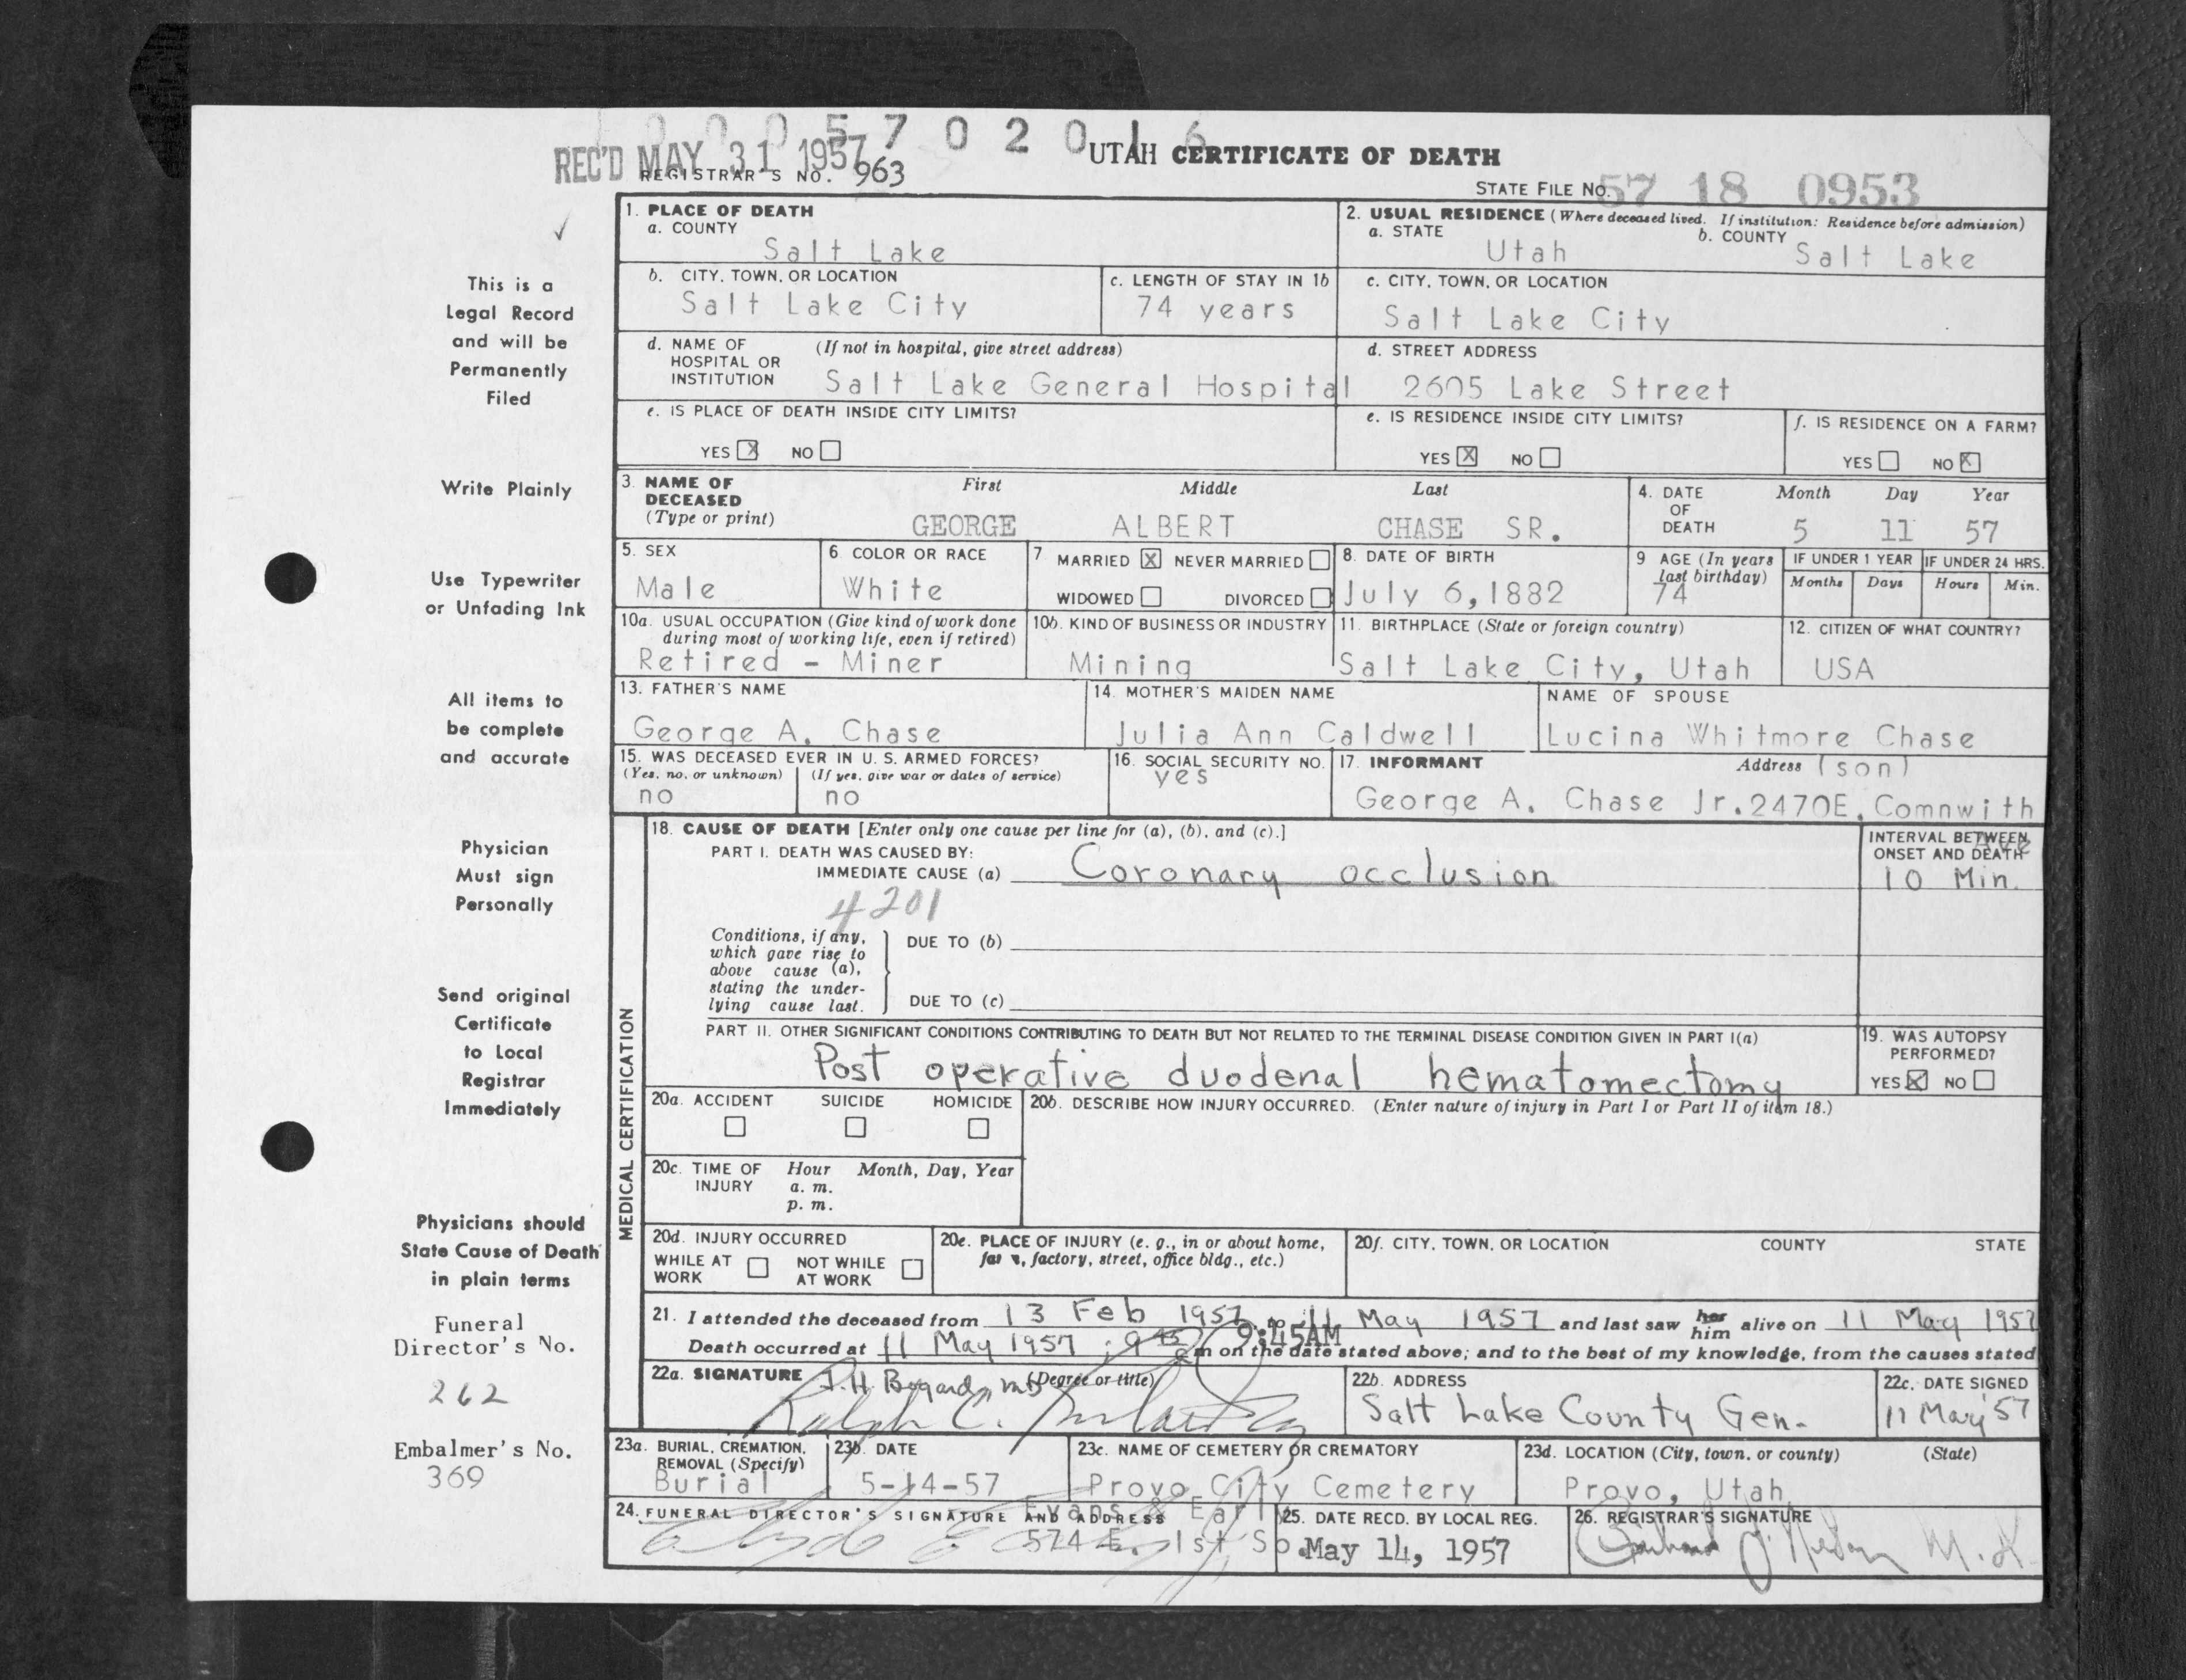 0 0 0 5 7 0 2 0 1 6
REC'D MAY 31 1957
UTAH CERTIFICATE OF DEATH
REGISTRAR'S NO. 963
STATE FILE NO. 57 18 0953
1. PLACE OF DEATH
a. COUNTY
Salt Lake
2. USUAL RESIDENCE (Where deceased lived. If institution: Residence before admission)
a. STATE
Utah
b. COUNTY
Salt Lake
b. CITY, TOWN, OR LOCATION
Salt Lake City
c. LENGTH OF STAY IN 1b
74 years
c. CITY, TOWN, OR LOCATION
Salt Lake City
d. NAME OF (If not in hospital, give street address)
HOSPITAL OR
INSTITUTION Salt Lake General Hospital
d. STREET ADDRESS
2605 Lake Street
e. IS PLACE OF DEATH INSIDE CITY LIMITS?
YES X NO
e. IS RESIDENCE INSIDE CITY LIMITS?
YES X NO
f. IS RESIDENCE ON A FARM?
YES NO X
3. NAME OF DECEASED (Type or print)
First Middle Last
GEORGE ALBERT CHASE SR.
4. DATE OF DEATH
Month Day Year
5 11 57
5. SEX
Male
6. COLOR OR RACE
White
7. MARRIED X NEVER MARRIED
WIDOWED DIVORCED
8. DATE OF BIRTH
July 6,1882
9 AGE (In years
last birthday)
74
IF UNDER 1 YEAR
Months Days
IF UNDER 24 HRS.
Hours Min.
10a. USUAL OCCUPATION (Give kind of work done
during most of working life, even if retired)
Retired - Miner
10b. KIND OF BUSINESS OR INDUSTRY
Mining
11. BIRTHPLACE (State or foreign country)
Salt Lake City, Utah
12. CITIZEN OF WHAT COUNTRY?
USA
13. FATHER'S NAME
George A. Chase
14. MOTHER'S MAIDEN NAME
Julia Ann Caldwell
NAME OF SPOUSE
Lucina Whitmore Chase
15. WAS DECEASED EVER IN U. S. ARMED FORCES?
(Yes, no, or unknown) (If yes, give war or dates of service)
no no
16. SOCIAL SECURITY NO.
yes
17. INFORMANT Address (son)
George A. Chase Jr. 2470E. Comnwith
Ave
MEDICAL CERTIFICATION
18. CAUSE OF DEATH [Enter only one cause per line for (a), (b), and (c).]
PART I. DEATH WAS CAUSED BY:
IMMEDIATE CAUSE (a) Coronary occlusion
4201
INTERVAL BETWEEN
ONSET AND DEATH
10 Min.
Conditions, if any,
which gave rise to
above cause (a),
stating the under-
lying cause last.
DUE TO (b)
DUE TO (c)
PART II. OTHER SIGNIFICANT CONDITIONS CONTRIBUTING TO DEATH BUT NOT RELATED TO THE TERMINAL DISEASE CONDITION GIVEN IN PART I(a)
Post operative duodenal hematomectomy
19. WAS AUTOPSY
PERFORMED?
YES X NO
20a. ACCIDENT SUICIDE HOMICIDE
20b. DESCRIBE HOW INJURY OCCURRED. (Enter nature of injury in Part I or Part II of item 18.)
20c. TIME OF INJURY
Hour Month, Day, Year
a. m.
p. m.
20d. INJURY OCCURRED
WHILE AT WORK
NOT WHILE AT WORK
20e. PLACE OF INJURY (e. g., in or about home,
farm, factory, street, office bldg., etc.)
20f. CITY, TOWN, OR LOCATION COUNTY STATE
21. I attended the deceased from 13 Feb 1957 to 11 May 1957 and last saw her him alive on 11 May 1957
Death occurred at 11 May 1957 ; 9 45 9:45AM m on the date stated above; and to the best of my knowledge, from the causes stated
22a. SIGNATURE (Degree or title)
Ralph C.
22b. ADDRESS
Salt Lake County Gen.
22c. DATE SIGNED
11 May '57
23a. BURIAL, CREMATION,
REMOVAL (Specify)
Burial
23b. DATE
5-14-57
23c. NAME OF CEMETERY OR CREMATORY
Provo City Cemetery
23d. LOCATION (City, town, or county) (State)
Provo, Utah
24. FUNERAL DIRECTOR'S SIGNATURE AND ADDRESS
Evans & Early
574 E. 1st So.
25. DATE RECD. BY LOCAL REG.
May 14, 1957
26. REGISTRAR'S SIGNATURE
This is a
Legal Record
and will be
Permanently
Filed
Write Plainly
Use Typewriter
or Unfading Ink
All items to
be complete
and accurate
Physician
Must sign
Personally
Send original
Certificate
to Local
Registrar
Immediately
Physicians should
State Cause of Death
in plain terms
Funeral
Director's No.
262
Embalmer's No.
369